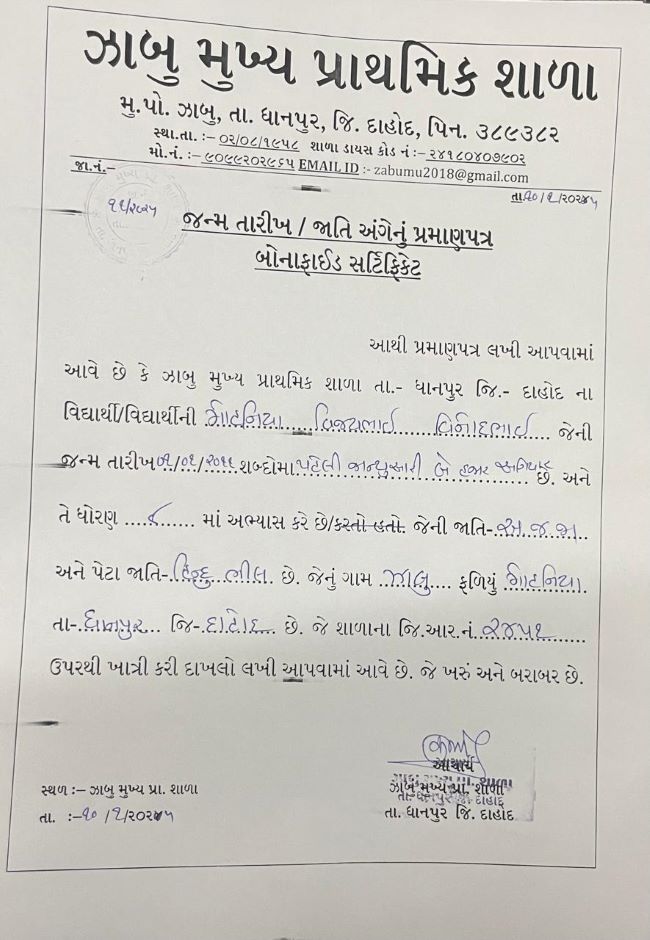 ઝાબુ મુખ્ય પ્રાથમિક શાળા
મુ.પો. ઝાબુ, તા. ધાનપુર, જિ. દાહોદ, પિન. ૩૮૯૩૮૨
સ્થા.તા. :– ૦૨/૦૮/૧૯૫૮ શાળા ડાયસ કોડ નં :– ૨૪૧૮૦૪૦૭૯૦૨
મો.નં. :– ૯૦૯૯૨૦૨૯૬૫ EMAIL ID :- zabumu2018@gmail.com
જા.નં.–
૧૧/૨૦૨૫
તા.૧૦/૧/૨૦૨૫
જન્મ તારીખ / જાતિ અંગેનું પ્રમાણપત્ર
બોનાફાઈડ સર્ટિફિકેટ
આથી પ્રમાણપત્ર લખી આપવામાં
આવે છે કે ઝાબુ મુખ્ય પ્રાથમિક શાળા તા.- ધાનપુર જિ.- દાહોદ ના
વિદ્યાર્થી/વિદ્યાર્થીની ભાઈ વિનોદભાઈ જેની
જન્મ તારીખ ૦૧/૦૧/૨૦૧૧ શબ્દોમા પહેલી જાન્યુઆરી બે હજાર અગિયાર છે. અને
તે ધોરણ ૮ માં અભ્યાસ કરે છે/કરતો હતો. જેની જાતિ- અ.જ.જા
અને પેટા જાતિ- હિન્દુ ભીલ છે. જેનું ગામ ઝાબુ ફળિયું
તા- ધાનપુર જિ- દાહોદ છે. જે શાળાના જિ.આર.નં ૨૪૫૧
ઉપરથી ખાત્રી કરી દાખલો લખી આપવામાં આવે છે. જે ખરું અને બરાબર છે.
આચાર્ય
સ્થળ :– ઝાબુ મુખ્ય પ્રા. શાળા
ઝાબુ મુખ્ય પ્રા. શાળા
તા. :–૧૦/૧/૨૦૨૫
તા. ધાનપુર જિ. દાહોદ